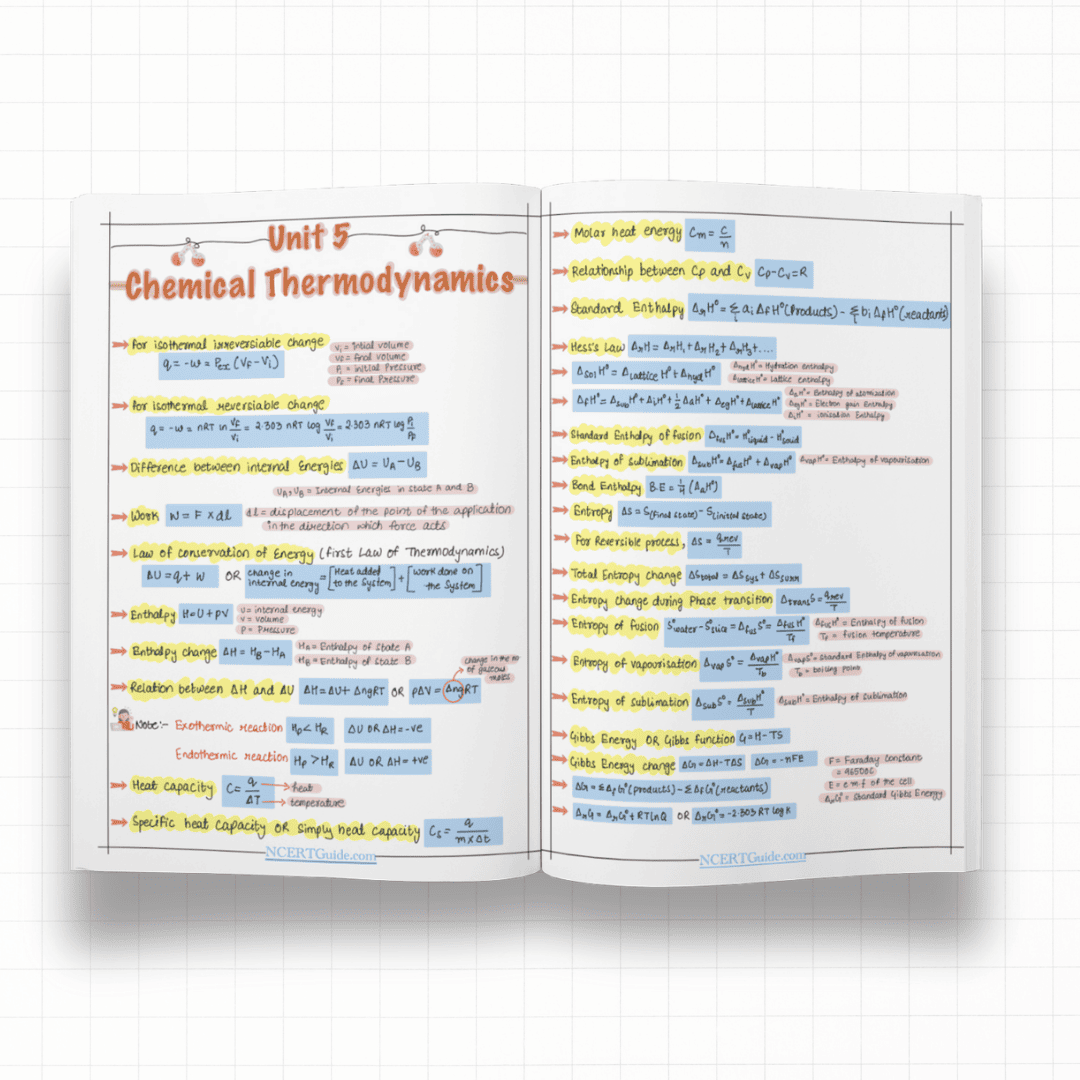 Unit 5
Chemical Thermodynamics
for isothermal irreversiable change
q = -w = Pex (VF - Vi)
Vi = intial volume
VF = final volume
Pi = initial Pressure
PF = Final Pressure
for isothermal reversiable change
q = -w = nRT ln VF/Vi = 2.303 nRT log VF/Vi = 2.303 nRT log Pi/PF
Difference between internal Energies ΔU = UA - UB
UA, UB = Internal Energies in state A and B
Work W = F x dl dl = displacement of the point of the application
in the direction which force acts
Law of conservation of Energy (first Law of Thermodynamics)
ΔU = q + w OR change in internal energy = [Heat added to the System] + [work done on the System]
Enthalpy H = U + PV
U = internal energy
V = volume
P = Pressure
Enthalpy change ΔH = HB - HA
HA = Enthalpy of State A
HB = Enthalpy of State B
Relation between ΔH and ΔU ΔH = ΔU + ΔngRT OR pΔV = ΔngRT
change in the no of gaseous moles
Note:- Exothermic reaction Hp < HR ΔU OR ΔH = -ve
Endothermic reaction Hp > HR ΔU OR ΔH = +ve
Heat capacity C = q/ΔT
heat
temperature
Specific heat capacity OR simply heat capacity Cs = q/m x Δt
NCERTGuide.com
Molar heat energy Cm = C/n
Relationship between Cp and Cv Cp - Cv = R
Standard Enthalpy ΔrH° = Σ ai ΔfH° (Products) - Σ bi ΔfH° (reactants)
Hess's Law ΔrH = ΔrH1 + ΔrH2 + ΔrH3 + ....
ΔsolH° = ΔlatticeH° + ΔhydH°
ΔhydH° = Hydration enthalpy
ΔlatticeH° = Lattice enthalpy
ΔfH° = ΔsubH° + ΔiH° + 1/2 ΔaH° + ΔegH° + ΔlatticeH°
ΔaH° = Enthalpy of atomization
ΔegH° = Electron gain Enthalpy
ΔiH° = ionisation Enthalpy
Standard Enthalpy of fusion ΔfusH° = H°liquid - H°solid
Enthalpy of sublimation ΔsubH° = ΔfusH° + ΔvapH° ΔvapH° = Enthalpy of vapourisation
Bond Enthalpy B.E = 1/4 (ΔaH°)
Entropy ΔS = S(Final state) - S(initial state)
For Reversible process, ΔS = qrev/T
Total Entropy change ΔStotal = ΔSsys + ΔSsurr
Entropy change during Phase transition ΔtransS = qrev/T
Entropy of fusion S°water - S°ice = ΔfusS° = ΔfusH°/Tf
ΔfusH° = Enthalpy of fusion
Tf = fusion temperature
Entropy of vapourisation ΔvapS° = ΔvapH°/Tb
ΔvapS° = Standard Enthalpy of vapourisation
Tb = boiling point
Entropy of sublimation ΔsubS° = ΔsubH°/T ΔsubH° = Enthalpy of sublimation
Gibbs Energy OR Gibbs function G = H - TS
Gibbs Energy change ΔG = ΔH - TΔS ΔG = -nFE
F = Faraday constant
= 96500C
E = e m f of the cell
ΔrG° = Standard Gibbs Energy
ΔG = Σ ΔfG° (products) - Σ ΔfG° (reactants)
ΔrG = ΔrG° + RT lnQ OR ΔrG° = -2.303 RT log K
NCERTGuide.com